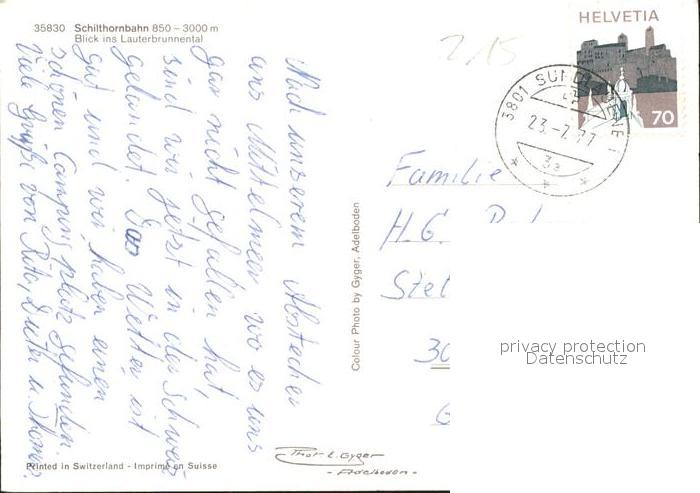 35830 Schilthornbahn 850 – 3000 m
Blick ins Lauterbrunnental
Nach unserem Abstecher
ans Mittelmeer wo es uns
gar nicht gefallen hat,
sind wir jetzt in der Schweiz
gelandet. Das Wetter ist
gut und wir haben einen
schönen Campingplatz gefunden.
Viele Grüße von Rita, Dieter u. Thomas
Printed in Switzerland - Imprimé en Suisse
Colour Photo by Gyger, Adelboden
Phot. E. Gyger
- Adelboden -
2/15
HELVETIA
70
3801
23.-7.77
3a
Familie
H.G.
Stei
30
privacy protection
Datenschutz